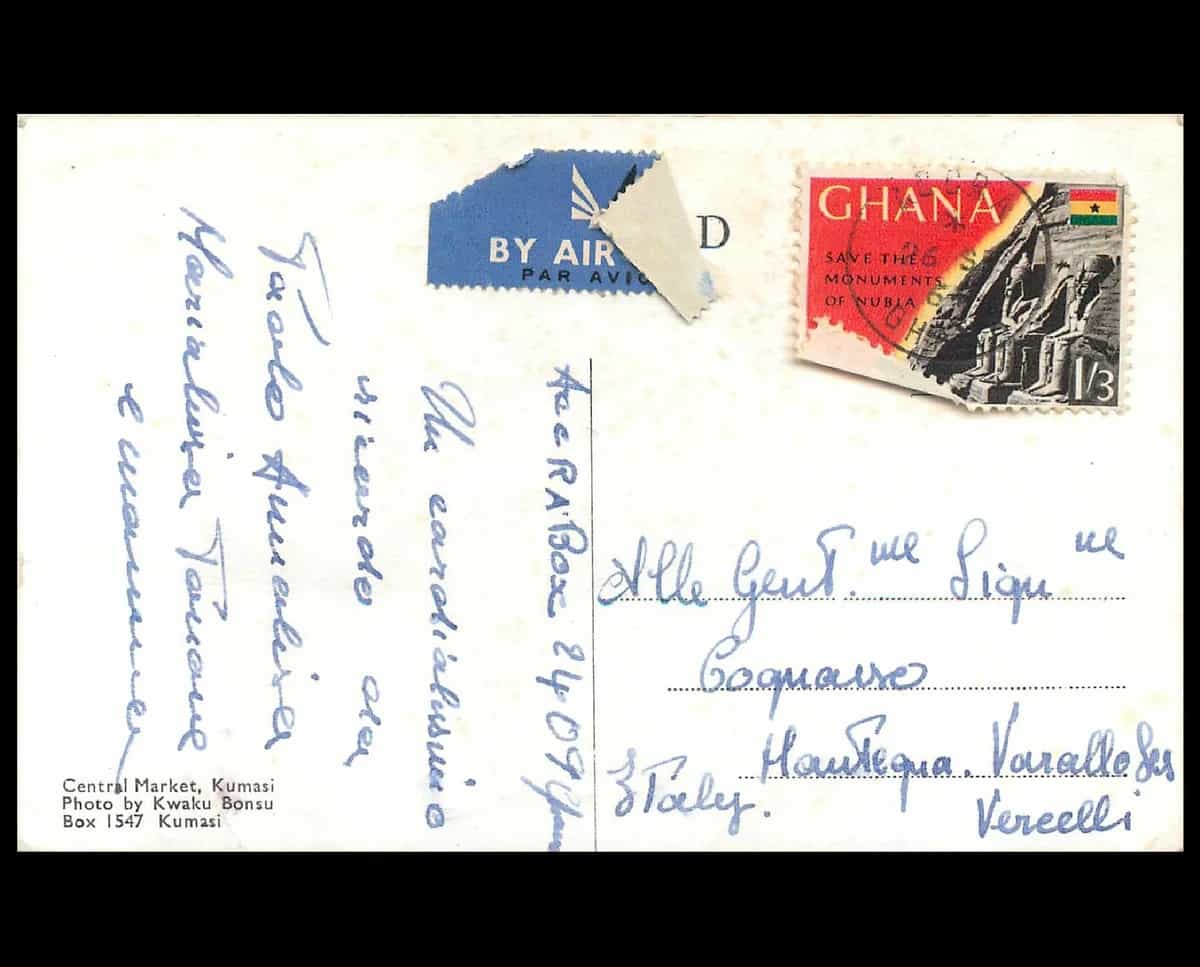 BY AIR
PAR AVIO
D
GHANA
SAVE THE
MONUMENTS
OF NUBIA
1/3
AccRA Box 2409 Ghana
Un cordialissimo
ricordo da
Paolo Annalisa
Marialuisa
e mamma
Alle Gent.me Sign ne
Cognasso
Mantegna. Varallo Ses
Vercelli
Italy.
Central Market, Kumasi
Photo by Kwaku Bonsu
Box 1547 Kumasi